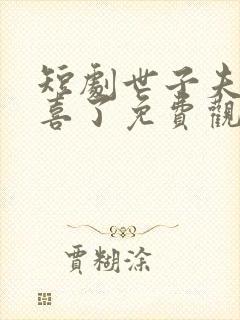 短劇世子夫
喜了免費觀
賈糊涂